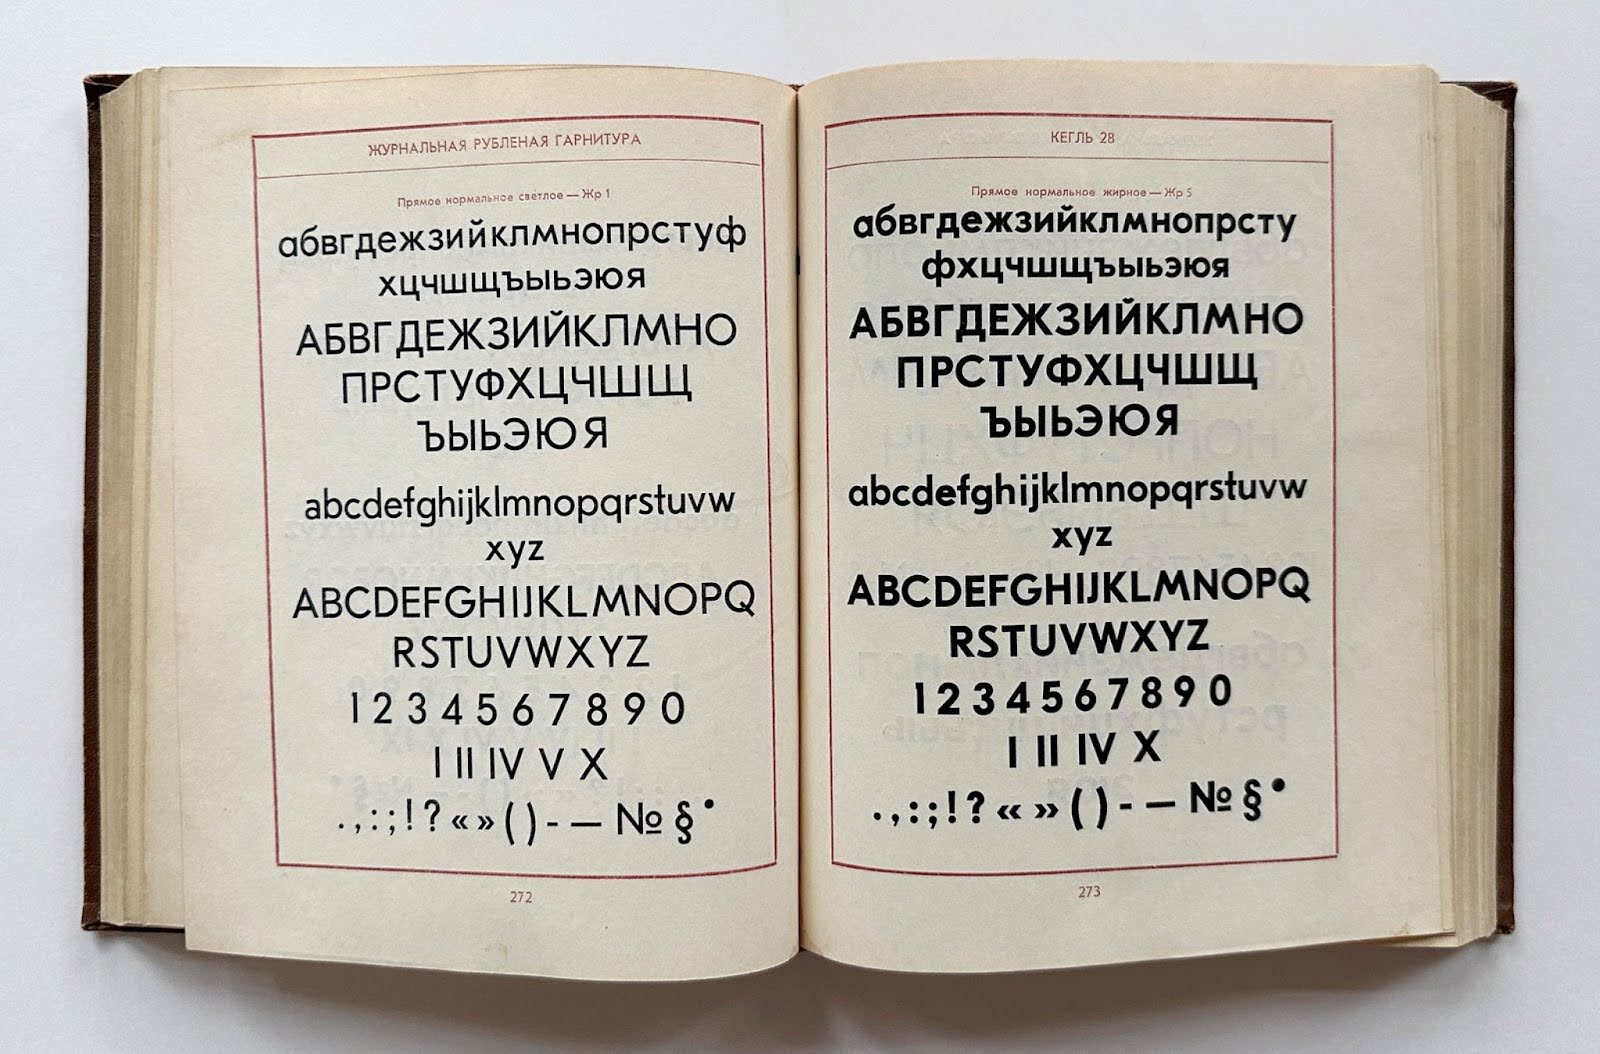 ЖУРНАЛЬНАЯ РУБЛЕНАЯ ГАРНИТУРА
Прямое нормальное светлое — Жр 1
абвгдежзийклмнопрстуф
хцчшщъыьэюя
АБВГДЕЖЗИЙКЛМНО
ПРСТУФХЦЧШЩ
ЪЫЬЭЮЯ
abcdefghijklmnopqrstuvw
xyz
ABCDEFGHIJKLMNOPQ
RSTUVWXYZ
1 2 3 4 5 6 7 8 9 0
I II IV V X
. , : ; ! ? « » ( ) - — № § •
272
КЕГЛЬ 28
Прямое нормальное жирное — Жр 5
абвгдежзийклмнопрсту
фхцчшщъыьэюя
АБВГДЕЖЗИЙКЛМНО
ПРСТУФХЦЧШЩ
ЪЫЬЭЮЯ
abcdefghijklmnopqrstuvw
xyz
ABCDEFGHIJKLMNOPQ
RSTUVWXYZ
1 2 3 4 5 6 7 8 9 0
I II IV X
. , : ; ! ? « » ( ) - — № § •
273